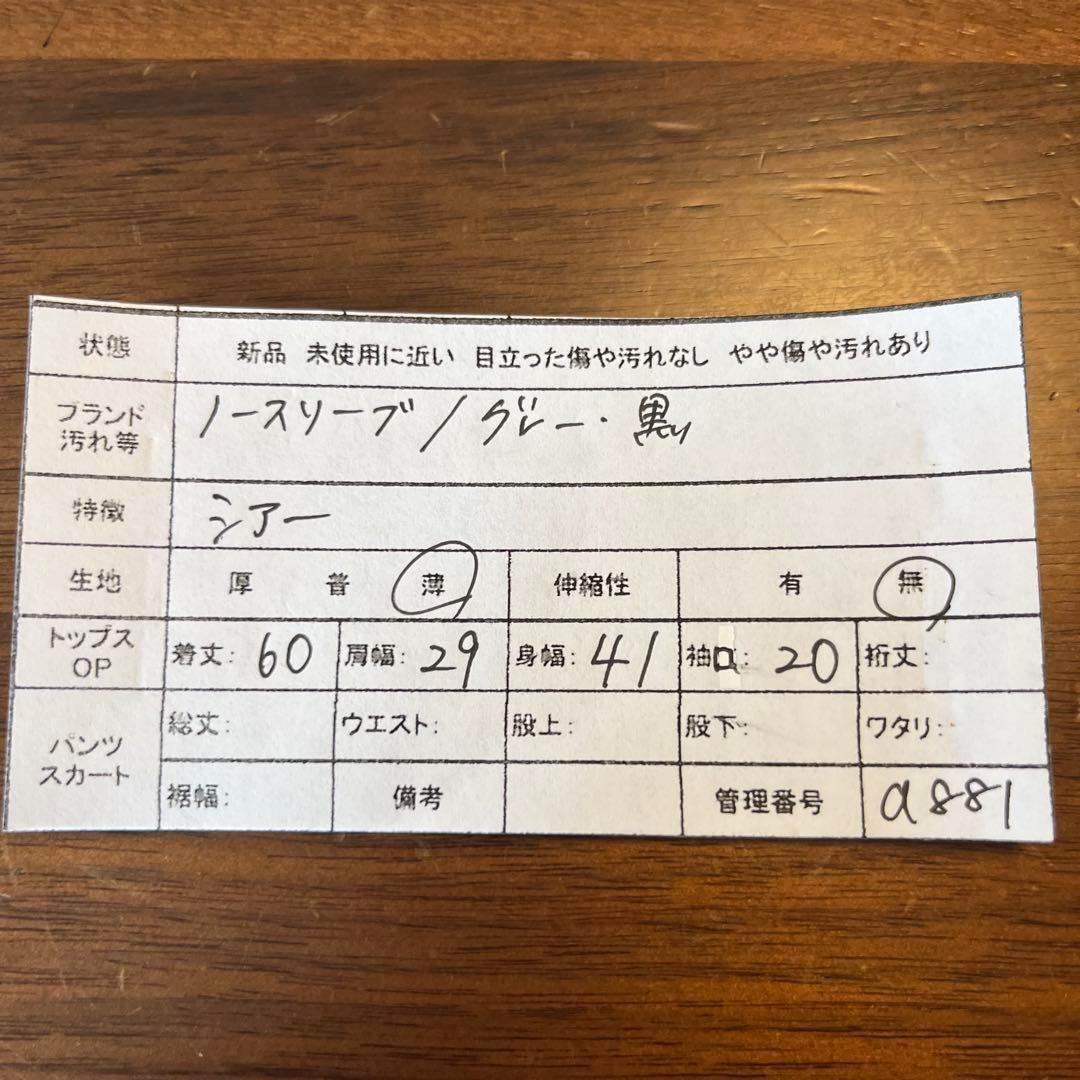 状態 新品 未使用に近い 目立った傷や汚れなし やや傷や汚れあり
ブランド 汚れ等 ノースリーブ / グレー・黒
特徴 シアー
生地 厚 普 薄 伸縮性 有 無
トップス OP 着丈: 60 肩幅: 29 身幅: 41 袖口: 20 裄丈:
パンツ スカート 総丈: ウエスト: 股上: 股下: ワタリ:
裾幅: 備考 管理番号 a881